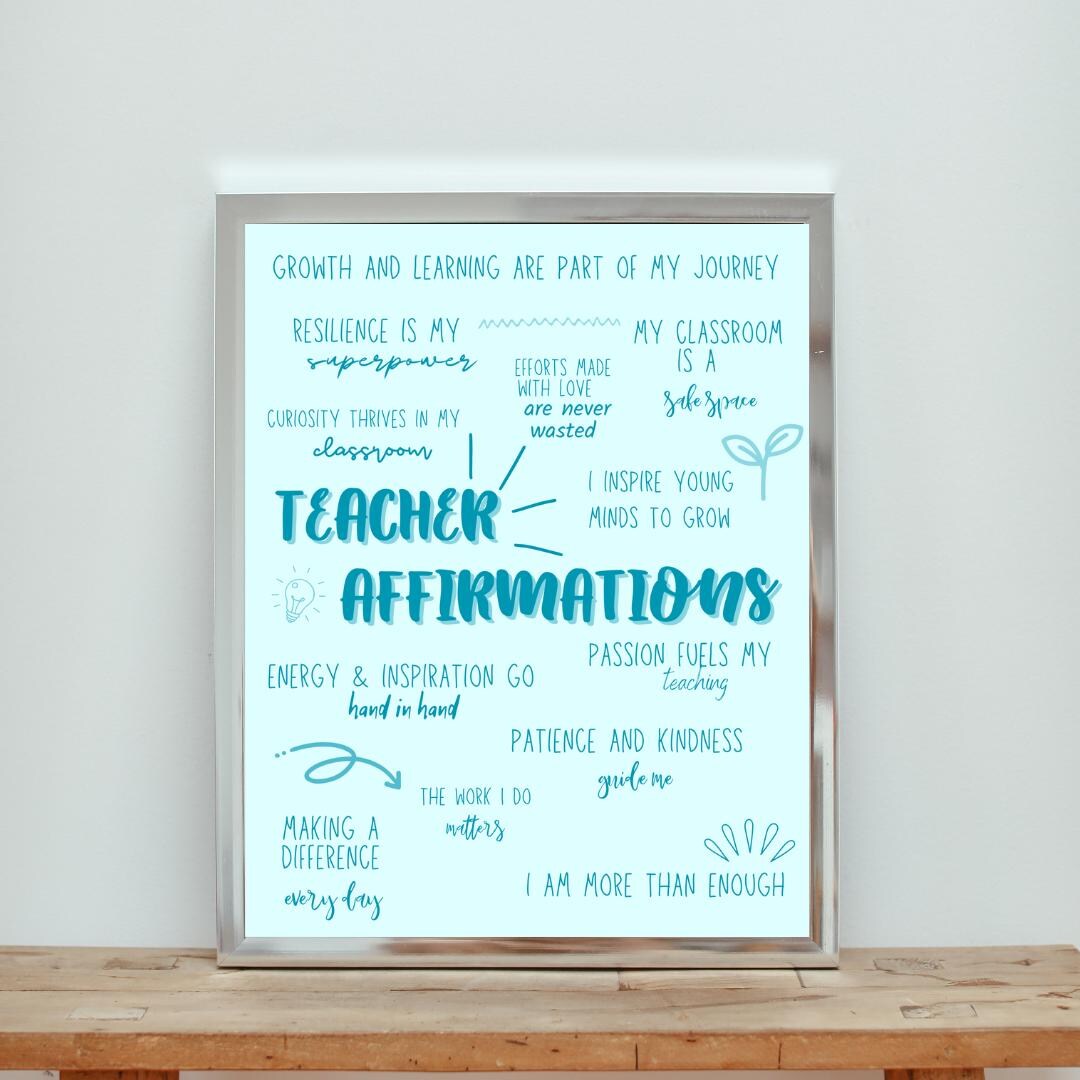 GROWTH AND LEARNING ARE PART OF MY JOURNEY
RESILIENCE IS MY
superpower
MY CLASSROOM
IS A
safe space
EFFORTS MADE
WITH LOVE
are never
wasted
CURIOSITY THRIVES IN MY
classroom
I INSPIRE YOUNG
MINDS TO GROW
TEACHER
AFFIRMATIONS
PASSION FUELS MY
teaching
ENERGY & INSPIRATION GO
hand in hand
PATIENCE AND KINDNESS
guide me
THE WORK I DO
matters
MAKING A
DIFFERENCE
every day
I AM MORE THAN ENOUGH